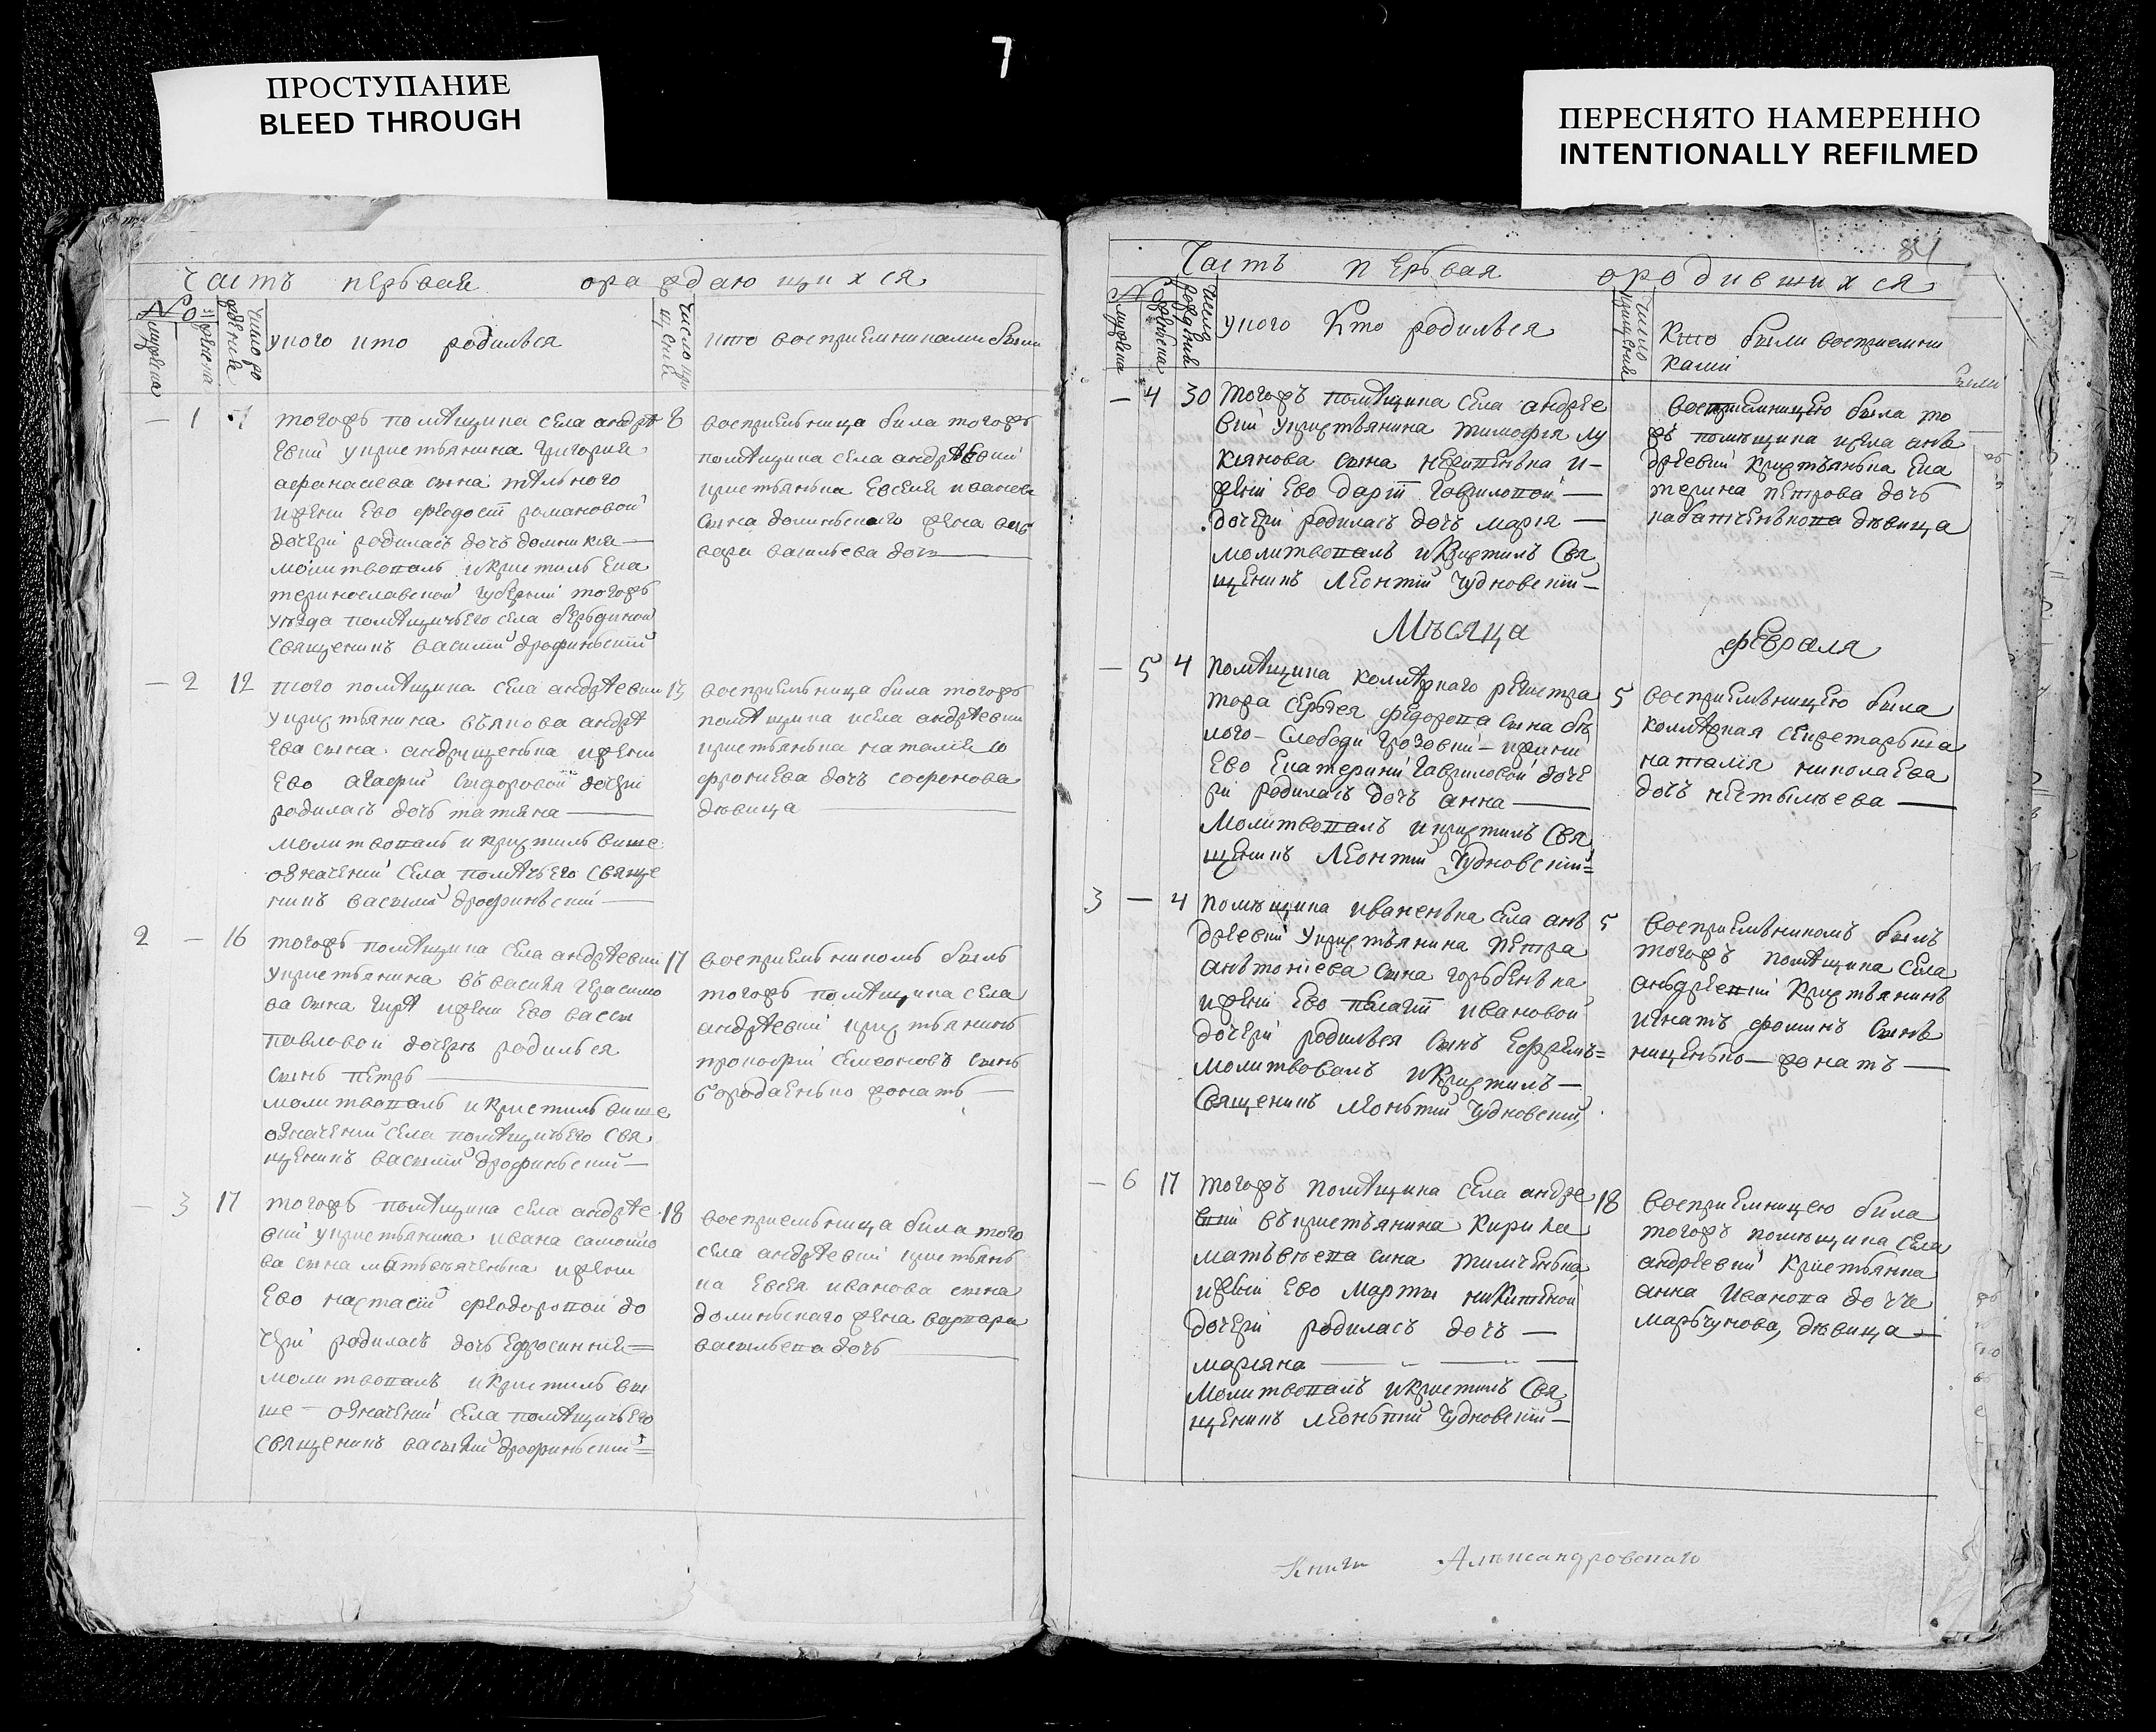 7
ПРОСТУПАНИЕ
BLEED THROUGH
ПЕРЕСНЯТО НАМЕРЕННО
INTENTIONALLY REFILMED
Часть первая ораждающихся
№
мужеска
женска
Число рождения
укого кто родилься
Число крищения
кто восприемниками были
— 1 7
тогожъ помѣщика села андрѣ
евки укристьянина григория
афанасиева сына
ижени ево феодосіи романовой
дочери родилась дочь домникия —
молитвовалъ икристилъ Ека
теринославской губернии тогожъ
уѣзда помѣщичьего села
священикъ василий дрофинский
8
восприемьница била тогожъ
помѣщика села андрѣевки
кристьянька Евсеия иванова
сына долинского жена вар
вара васильева дочь —
— 2 12
того помѣщика села андрѣевки
укристьянина вълкова андрѣ
ева сына андрищенька ижени
Ево агафии сидоровой дочери
родилась дочь татияна —
молитвовалъ и кристилъ више
означений села помѣчьего свяще
никъ василий дрофинский —
13
восприемьница била тогожъ
помѣщика исела андрѣевки
кристьянька наталия
дочь софонова
дѣвица —
2 — 16
тогожъ помѣщика села андрѣевки
укристьянина въ василя герасимо
ва сына ижени Ево васси
павловой дочери родилься
сынъ петръ —
молитвовалъ икристилъ више
означений села помѣщичьего свя
щеникъ василий дрофинский —
17
восприемьникомъ билъ
тогожъ помѣщика села
андрѣевки кристьянинъ
прокофий симеоновъ сынъ
бородаенько жонатъ —
— 3 17
тогожъ помѣщика села андрѣе
вки укристьянина ивана самойло
ва сына матвѣяченька ижени
Ево настасіи феодоровой до
чери родилась дочь Ефросиния =
молитвовалъ икристилъ ви
ше — означений села помѣщичьего
священикъ василий дрофинский =
18
восприемьница била того
села андрѣевки кристьянь
ка Евсея иванова сына
долинского жена варвара
васильева дочь —
84
Часть первая ородившихся
№
мужеска
женска
Число рождения
укого Кто родилься
Число крищения
Кто были восприемни
ками
— 4 30
Тогожъ помѣщика села андрее
вки укристьянина тимофия лу
киянова сына и —
жени Ево дарии гавриловой —
дочери родилась дочь мария —
молитвовалъ икристилъ Свя
щеникъ Леонтий Чудновский —
восприемницею была то
жъ помѣщика исела анъ
дреевки кристьянька Ека
терина петрова дочь
дѣвица
Мѣсяца февраля
— 5 4
Помѣщика колѣжкаго регистра
тора сергея феодорова сына бѣ
лого — Слободи грозовки — ижини
Ево Екатерини гавриловой доче
ри родилась дочь анна —
Молитвовалъ икристилъ Свя
щеникъ Леонтий Чудновский =
5
восприемьницею была
колѣжская сикретарьша
наталия николаева
дочь —
3 — 4
помѣщика иваненька села анъ
дреевки укристьянина петра
анътониева сына горьбенька
ижени Ево пелагии ивановой
дочери родилься сынъ Ефремъ =
молитвовалъ икристилъ —
Священикъ Леонътий Чудновский
5
восприемьникомъ былъ
тогожъ помѣщика села
аньдреевки кристьянинъ
игнатъ фоминъ сынъ
нищенько — жонатъ —
— 6 17
тогожъ помѣщика села андре
вки въкристьянина кирила
матьвѣева сина тимченька
ижени Ево марты никитеной
дочери родилась дочь —
марияна —
молитвовалъ икристилъ Свя
щеникъ Леонътий Чудновский —
18
восприемницею била
тогожъ помѣщика села
андреевки кристьянка
анна иванова дочь
марьчукова, дѣвица —
Книги Александровскаго